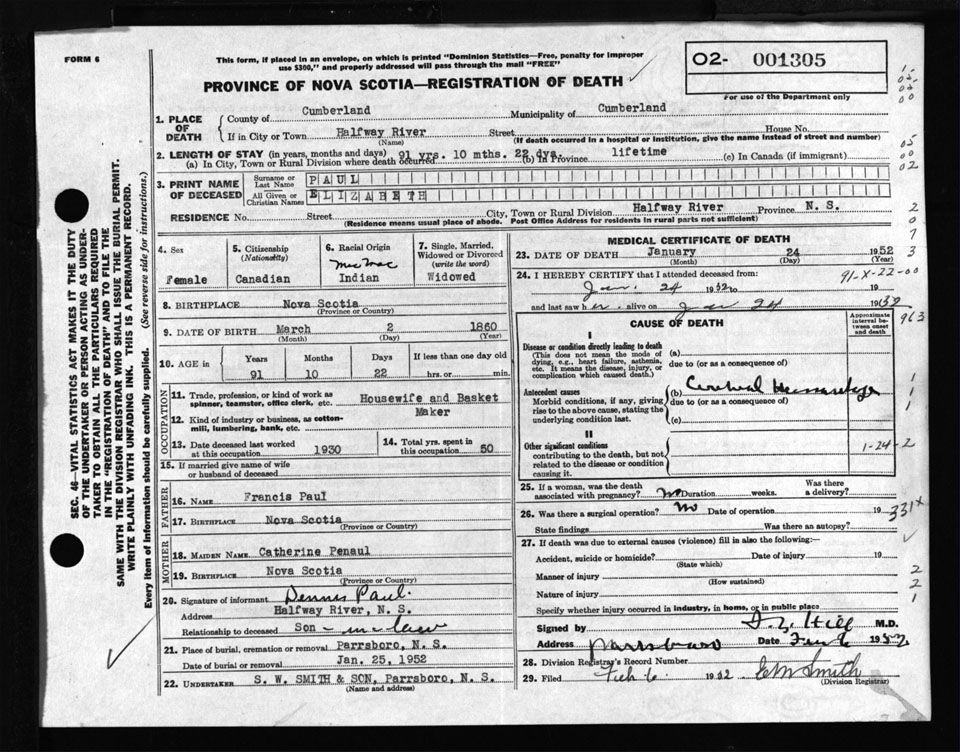 FORM 6
This form, if placed in an envelope, on which is printed "Dominion Statistics—Free, penalty for improper
use $300," and properly addressed will pass through the mail "FREE"
PROVINCE OF NOVA SCOTIA—REGISTRATION OF DEATH
O2- 001305
For use of the Department only
1. PLACE OF DEATH
County of Cumberland Municipality of Cumberland
If in City or Town Halfway River Street House No.
(Name) (If death occurred in a hospital or institution, give the name instead of street and number)
2. LENGTH OF STAY (in years, months and days) 91 yrs. 10 mths. 22 dys. lifetime
(a) In City, Town or Rural Division where death occurred (b) In Province (c) In Canada (if immigrant)
3. PRINT NAME OF DECEASED
Surname or Last Name PAUL
All Given or Christian Names ELIZABETH
RESIDENCE No. Street City, Town or Rural Division Halfway River Province N. S.
(Residence means usual place of abode. Post Office Address for residents in rural parts not sufficient)
4. Sex
Female
5. Citizenship
(Nationality)
Canadian
6. Racial Origin
Mic Mac
Indian
7. Single, Married,
Widowed or Divorced
(write the word)
Widowed
8. BIRTHPLACE Nova Scotia
(Province or Country)
9. DATE OF BIRTH March 2 1860
(Month) (Day) (Year)
10. AGE in
Years Months Days If less than one day old
91 10 22 hrs. or min.
OCCUPATION
11. Trade, profession, or kind of work as
spinner, teamster, office clerk, etc. Housewife and Basket
Maker
12. Kind of industry or business, as cotton-
mill, lumbering, bank, etc.
13. Date deceased last worked
at this occupation 1930
14. Total yrs. spent in
this occupation 50
15. If married give name of wife
or husband of deceased
FATHER
16. NAME Francis Paul
17. BIRTHPLACE Nova Scotia
(Province or Country)
MOTHER
18. MAIDEN NAME Catherine Penaul
19. BIRTHPLACE Nova Scotia
(Province or Country)
20. Signature of informant Dennis Paul.
Address Halfway River, N. S.
Relationship to deceased Son - in-law
21. Place of burial, cremation or removal Parrsboro, N. S.
Date of burial or removal Jan. 25, 1952
22. UNDERTAKER S. W. SMITH & SON, Parrsboro, N. S.
(Name and address)
MEDICAL CERTIFICATE OF DEATH
23. DATE OF DEATH January 24 1952
(Month) (Day) (Year)
24. I HEREBY CERTIFY that I attended deceased from:
91-X-22-00
Jan. 24 1952 to 19
and last saw her alive on Jan 24 1952
963
CAUSE OF DEATH
Approximate
interval be-
tween onset
and death
I
Disease or condition directly leading to death
(This does not mean the mode of
dying, e.g., heart failure, asthenia,
etc. It means the disease, injury, or
complication which caused death.)
(a)
due to (or as a consequence of)
Antecedent causes
Morbid conditions, if any, giving
rise to the above cause, stating the
underlying condition last.
(b) Cerebral Hemorrhage
due to (or as a consequence of)
(c)
II
Other significant conditions
contributing to the death, but not
related to the disease or condition
causing it.
1-24-2
25. If a woman, was the death
associated with pregnancy? no Duration weeks. Was there
a delivery?
26. Was there a surgical operation? no Date of operation 19
331X
State findings Was there an autopsy?
27. If death was due to external causes (violence) fill in also the following:—
Accident, suicide or homicide? Date of injury 19
(State which)
Manner of injury
(How sustained)
Nature of injury
Specify whether injury occurred in industry, in home, or in public place
Signed by Hill M.D.
Address Parrsboro Date Feb 6 1952
28. Division Registrar's Record Number
29. Filed Feb 6 1952 E M Smith
(Division Registrar)
SEC. 46—VITAL STATISTICS ACT MAKES IT THE DUTY
OF THE UNDERTAKER OR PERSON ACTING AS UNDER-
TAKER TO OBTAIN ALL THE PARTICULARS REQUIRED
IN THE "REGISTRATION OF DEATH" AND TO FILE THE
SAME WITH THE DIVISION REGISTRAR WHO SHALL ISSUE THE BURIAL PERMIT.
WRITE PLAINLY WITH UNFADING INK. THIS IS A PERMANENT RECORD.
Every item of information should be carefully supplied. (See reverse side for instructions.)